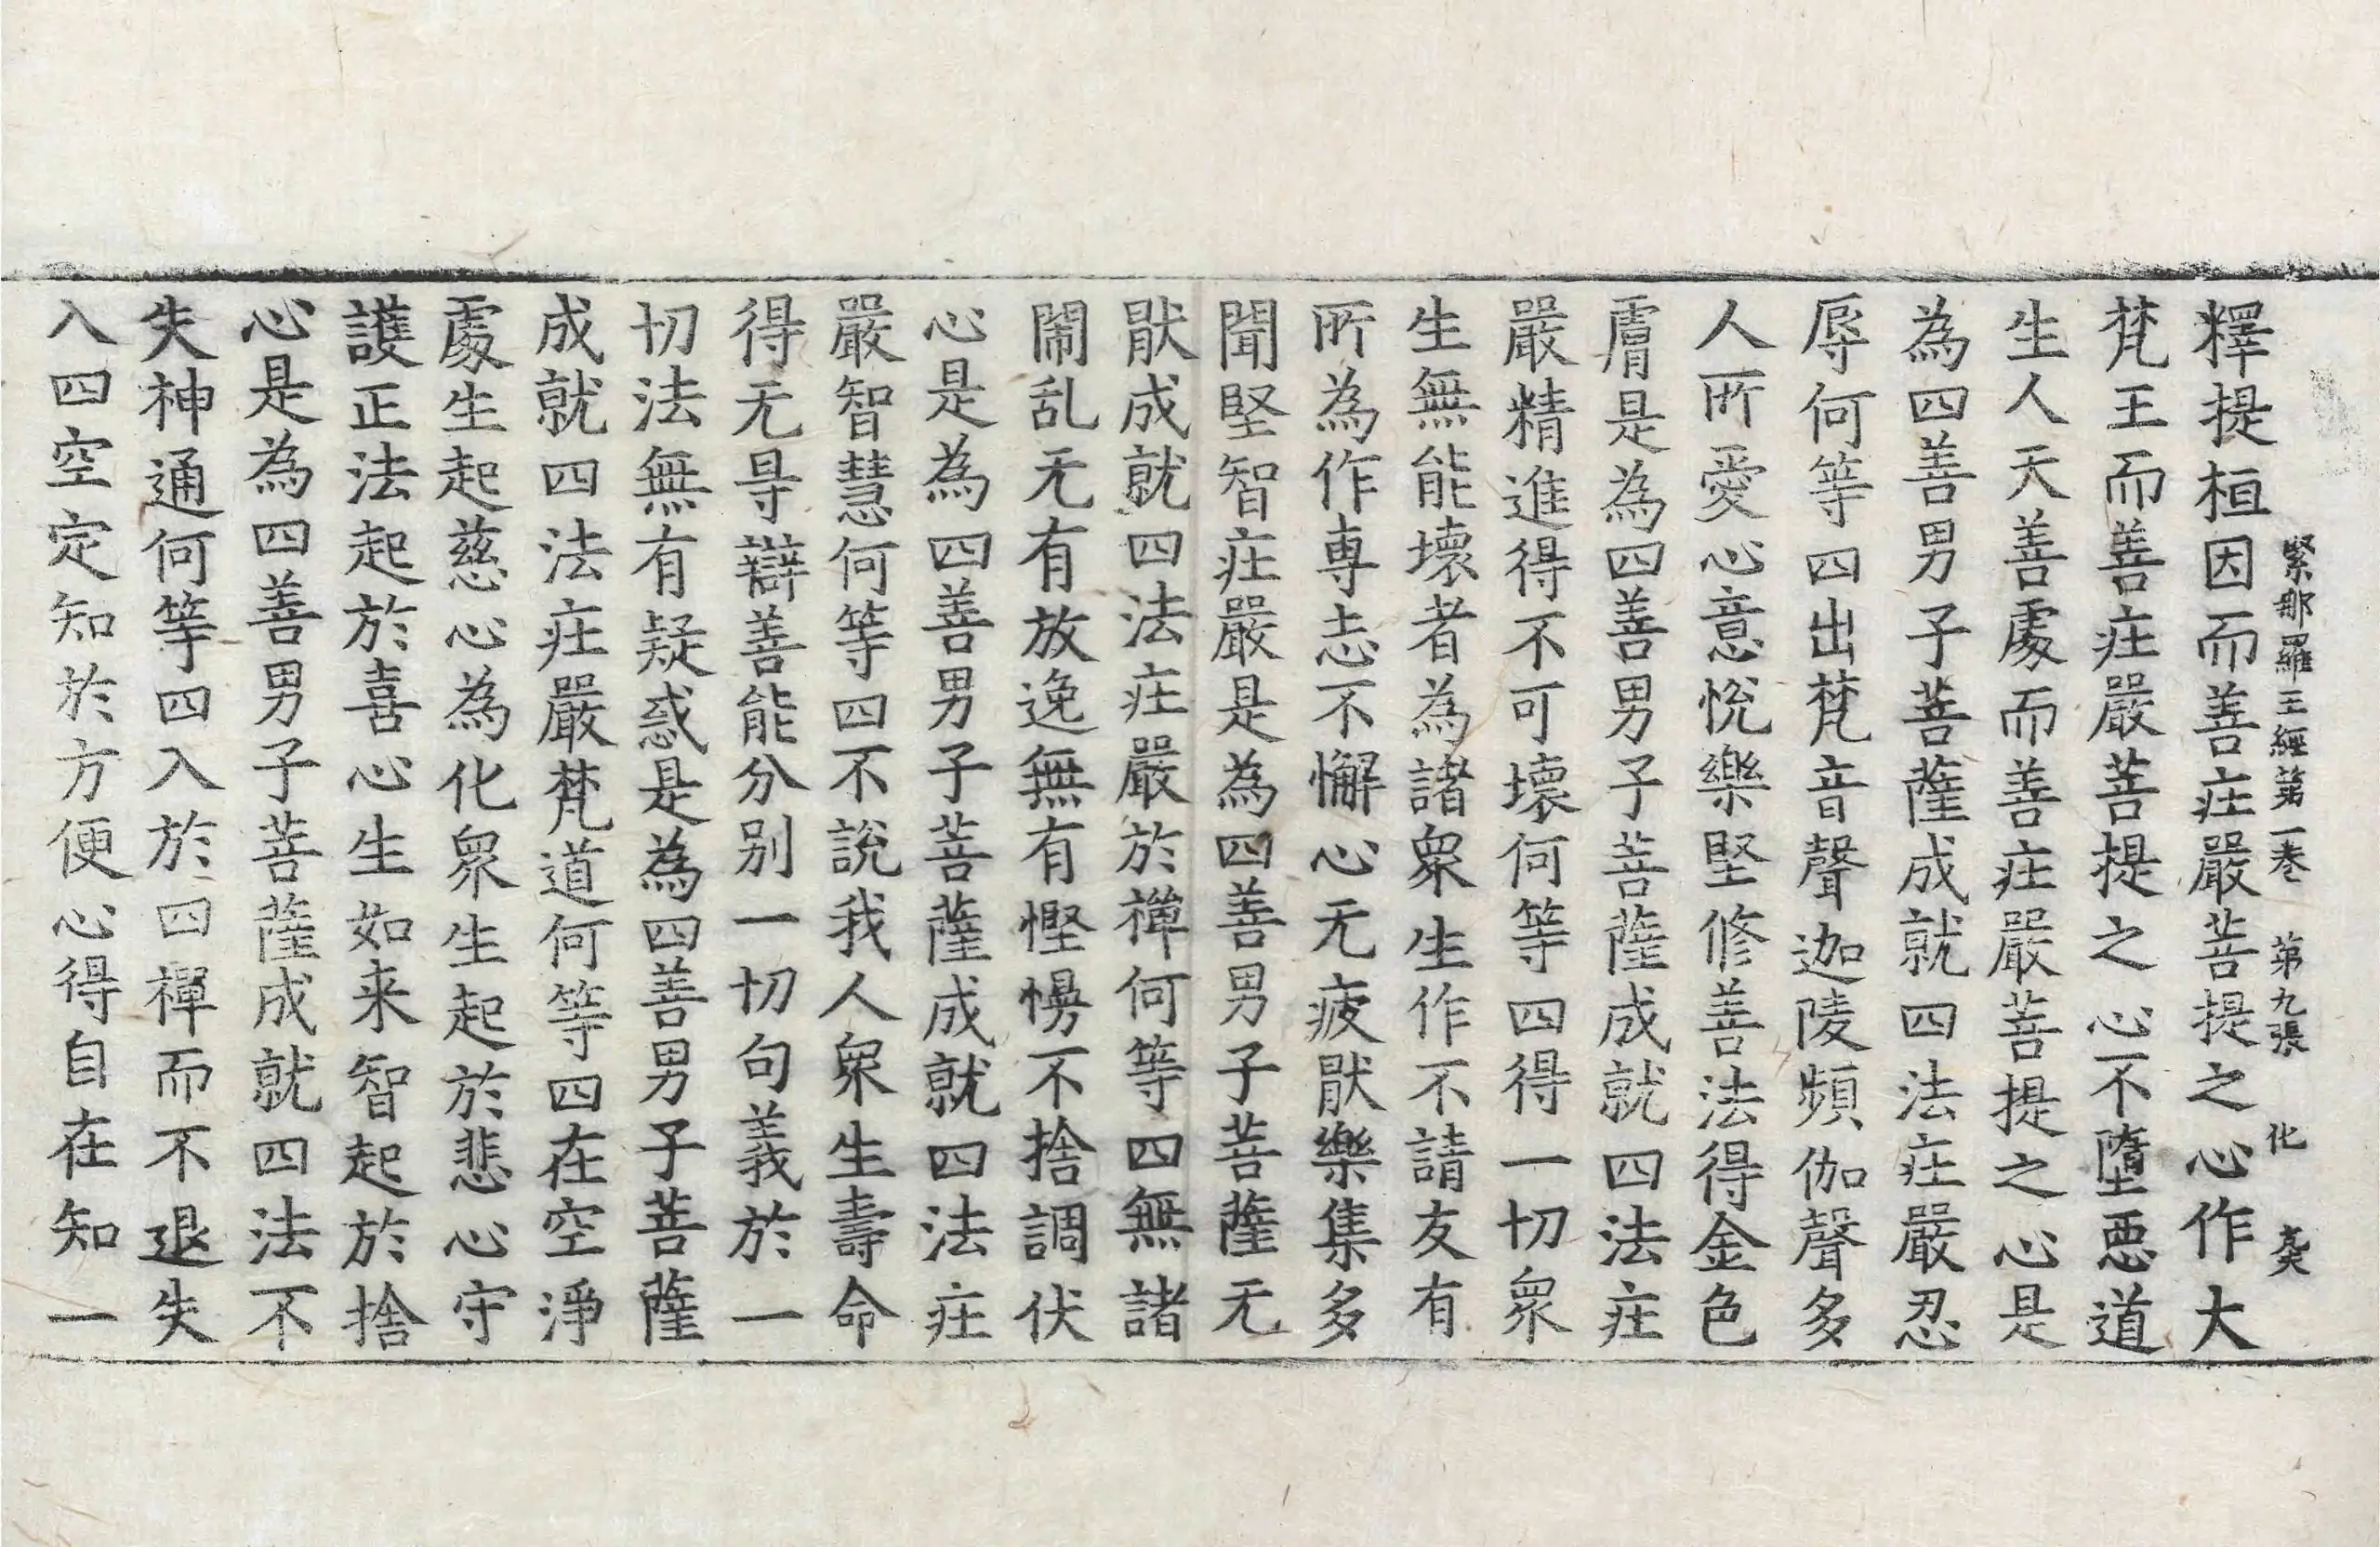 緊那羅王經第一卷　第九張　化
釋提桓因而善疰嚴菩提之心作大
梵王而善疰嚴菩提之心不墮惡道
生人天善處而善疰嚴菩提之心是
為四善男子菩薩成就四法疰嚴忍
辱何等四出梵音聲迦陵頻伽聲多
人所愛心意悅樂堅修善法得金色
膚是為四善男子菩薩成就四法疰
嚴精進得不可壞何等四得一切衆
生無能壞者為諸衆生作不請友有
所為作專志不懈心无疲猒樂集多
聞堅智疰嚴是為四善男子菩薩无
猒成就四法疰嚴於禪何等四無諸
閙乱无有放逸無有慳㥬不捨調伏
心是為四善男子菩薩成就四法疰
嚴智慧何等四不說我人衆生壽命
得无㝵辯善能分別一切句義於一
切法無有疑惑是為四善男子菩薩
成就四法疰嚴梵道何等四在空淨
處生起慈心為化衆生起於悲心守
護正法起於喜心生如来智起於捨
心是為四善男子菩薩成就四法不
失神通何等四入於四禪而不退失
入四空定知於方便心得自在知一